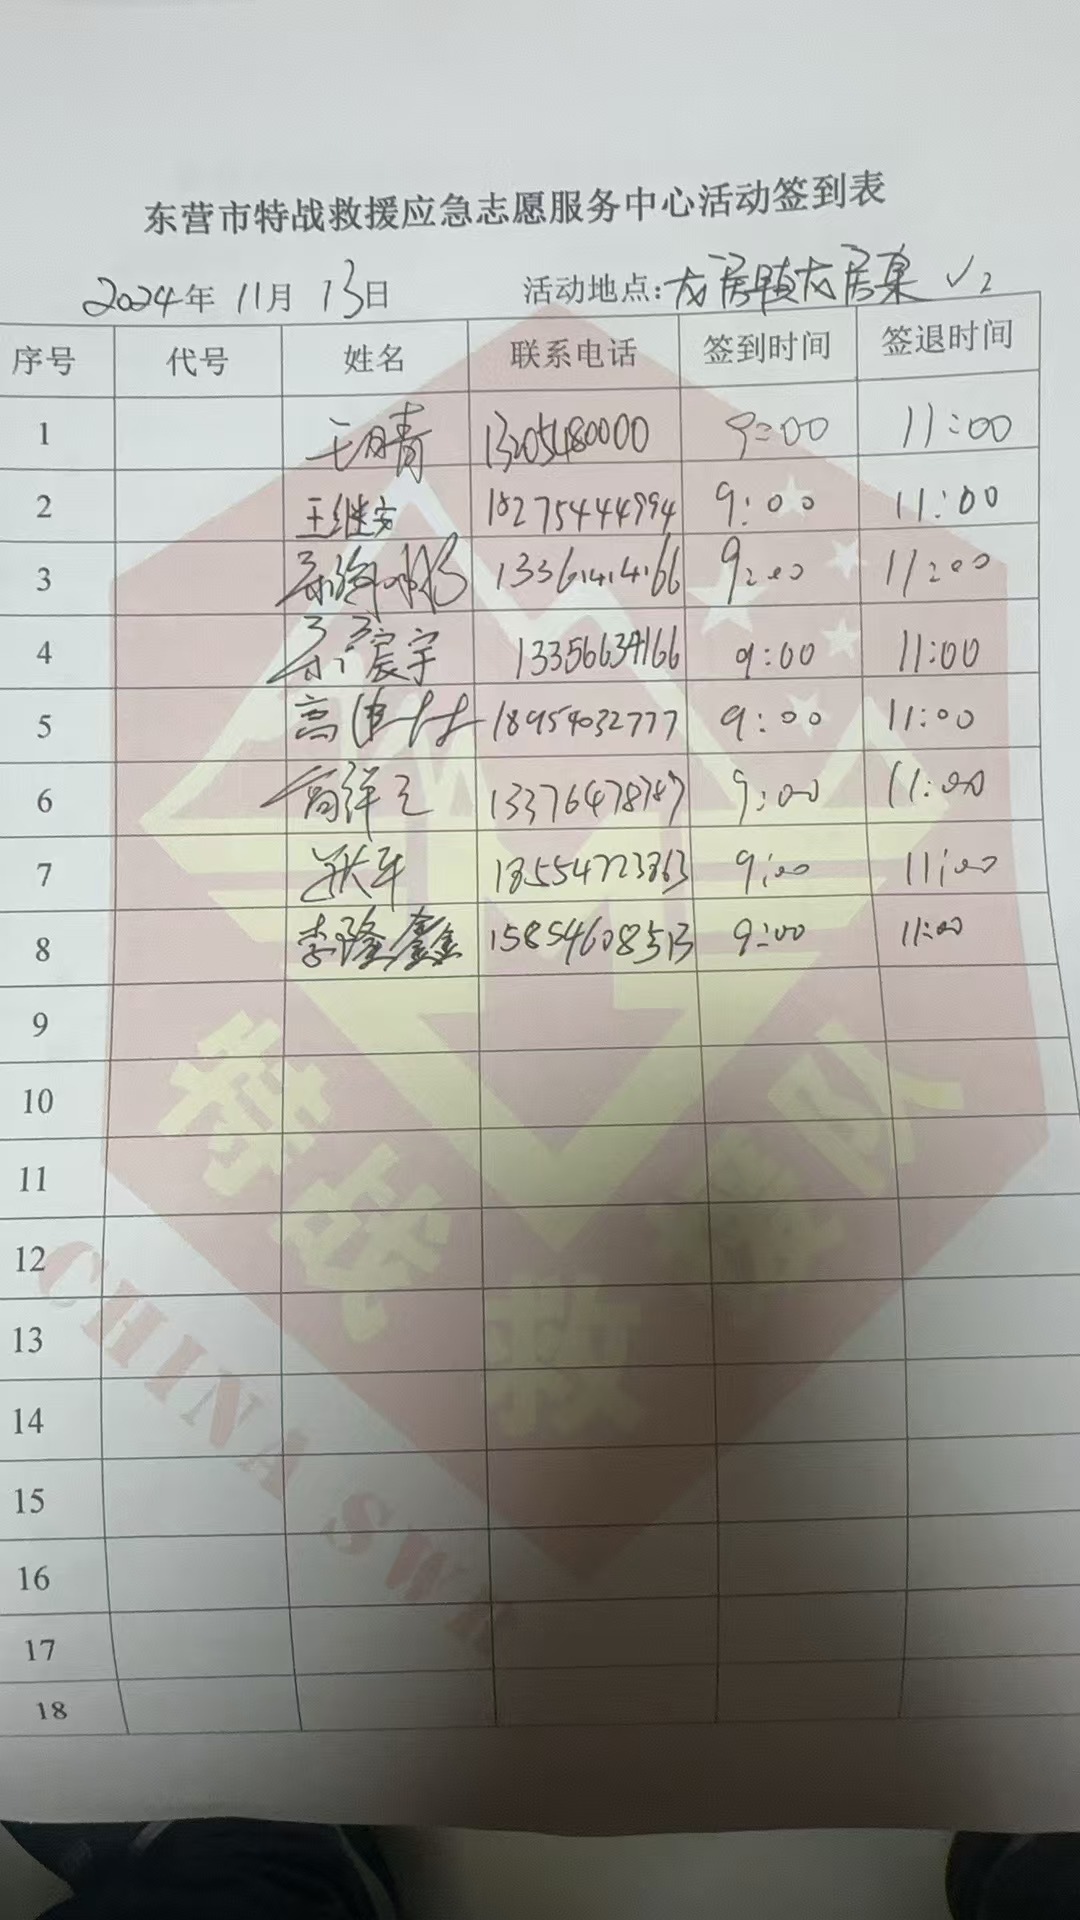 东营市特战救援应急志愿服务中心活动签到表
2024年 11月 13日 活动地点：龙居镇龙居集 √2
序号 代号 姓名 联系电话 签到时间 签退时间
1 13205480000 9:00 11:00
2 王继安 18275444994 9:00 11:00
3 13361414166 9:00 11:00
4 宸宇 13356634166 9:00 11:00
5 高 18954032777 9:00 11:00
6 9:00 11:00
7 18554723863 9:00 11:00
8 李隆鑫 15854608513 9:00 11:00
9
10
11
12
13
14
15
16
17
18
特战救援队
CHINA SWR